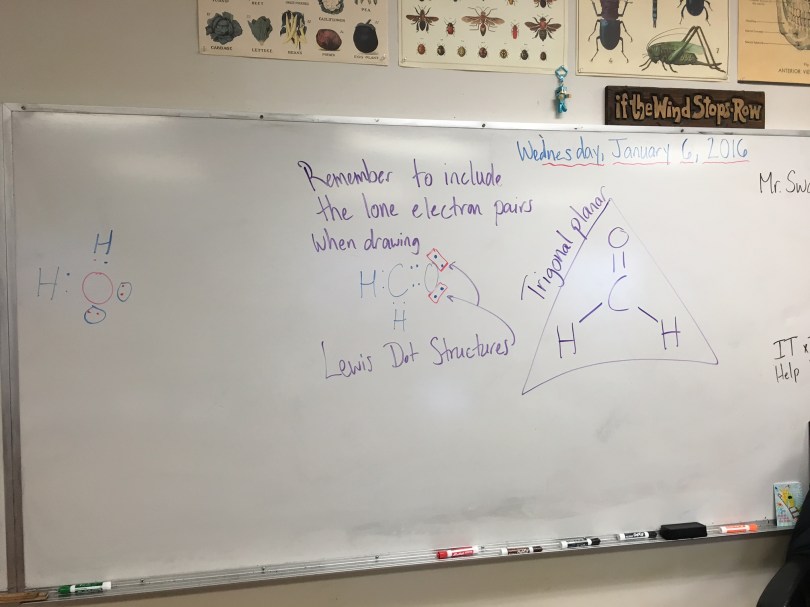 CABBAGE
LETTUCE
if the Wind Stops-Row
Wednesday, January 6, 2016
Remember to include
the lone electron pairs
when drawing
H:C::O
H
Lewis Dot Structures
H
H:O
Trigonal planar
O
C
H H
Mr.
IT
Help
ANTERIOR